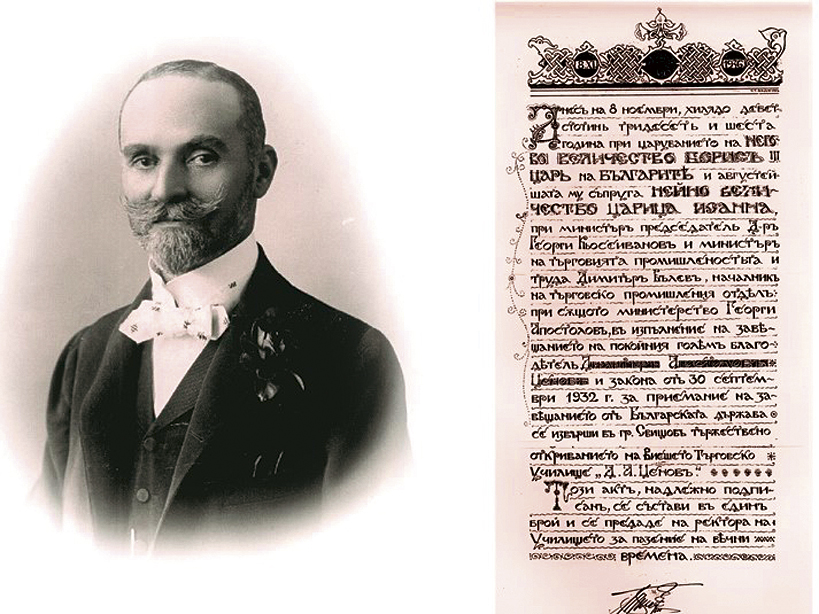 8.XI 1936
Днесъ на 8 ноември, хилядо девет-
стотинъ тридесеть и шеста
година при царуванието на НЕГО-
ВО ВЕЛИЧЕСТВО БОРИСЪ III
ЦАРЬ на БЪЛГАРИТѢ и августей-
шата му съпруга НЕЙНО ВЕЛИ-
ЧЕСТВО ЦАРИЦА ИОАННА,
при министъръ председатель Д-ръ
Георги Кьосеивановъ и министъръ
на търговията промишленостьта и
труда Димитъръ Вълевъ, началникъ
на търговско промишления отдѣлъ
при сѫщото министерство Георги
Апостоловъ, въ изпълнение на завѣ-
щанието на покойния голѣмъ благо-
дѣтель Димитъръ Апостоловъ
Ценовъ и закона отъ 30 септем-
ври 1932 г. за приемание на за-
вѣщанието отъ Българската държава
се извърши въ гр. Свищовъ тържествено
откриването на Висшето Търговско
Училище „Д. А. Ценовъ."
Този актъ, надлежно подпи-
санъ, се състави въ единъ
брой и се предаде на ректора на
Училището за пазение на вѣчни
времена.